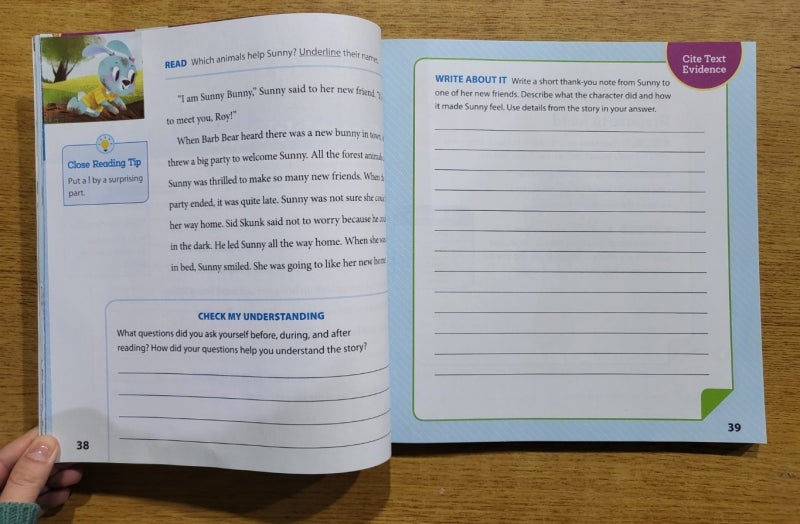 READ Which animals help Sunny? Underline their names.
"I am Sunny Bunny," Sunny said to her new friend.
to meet you, Roy!"
When Barb Bear heard there was a new bunny in
threw a big party to welcome Sunny. All the forest
Sunny was thrilled to make so many new friends. When
party ended, it was quite late. Sunny was not sure she
her way home. Sid Skunk said not to worry because he
in the dark. He led Sunny all the way home. When she
in bed, Sunny smiled. She was going to like her new
Close Reading Tip
Put a ! by a surprising
part.
CHECK MY UNDERSTANDING
What questions did you ask yourself before, during, and after
reading? How did your questions help you understand the story?
38
Cite Text
Evidence
WRITE ABOUT IT Write a short thank-you note from Sunny to
one of her new friends. Describe what the character did and how
it made Sunny feel. Use details from the story in your answer.
39